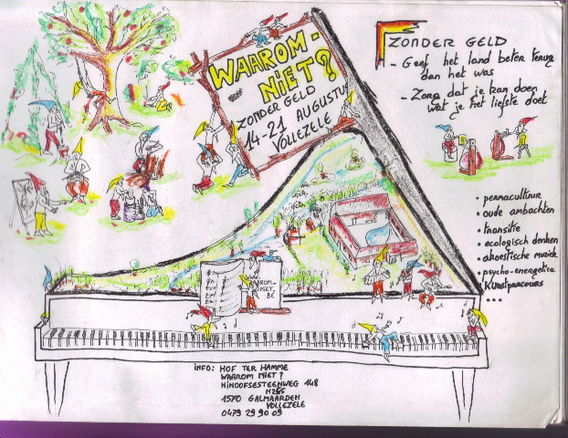 WAAROM-
NIET?
ZONDER GELD
14-21 AUGUSTUS
VOLLEZELE
ZONDER GELD
- Geef het land beter terug
dan het was
- Zorg dat je kan doen
wat je het liefste doet
• permacultuur
• oude ambachten
• transitie
• ecologisch denken
• akoestische muziek
• psycho-energetica
• Kunstparcours
...
WAAROM-
NIET.BE
INFO: HOF TER HAMME
WAAROM NIET?
NINOOFSESTEENWEG 148
N255
1570 GALMAARDEN
VOLLEZELE
0479 29 90 09